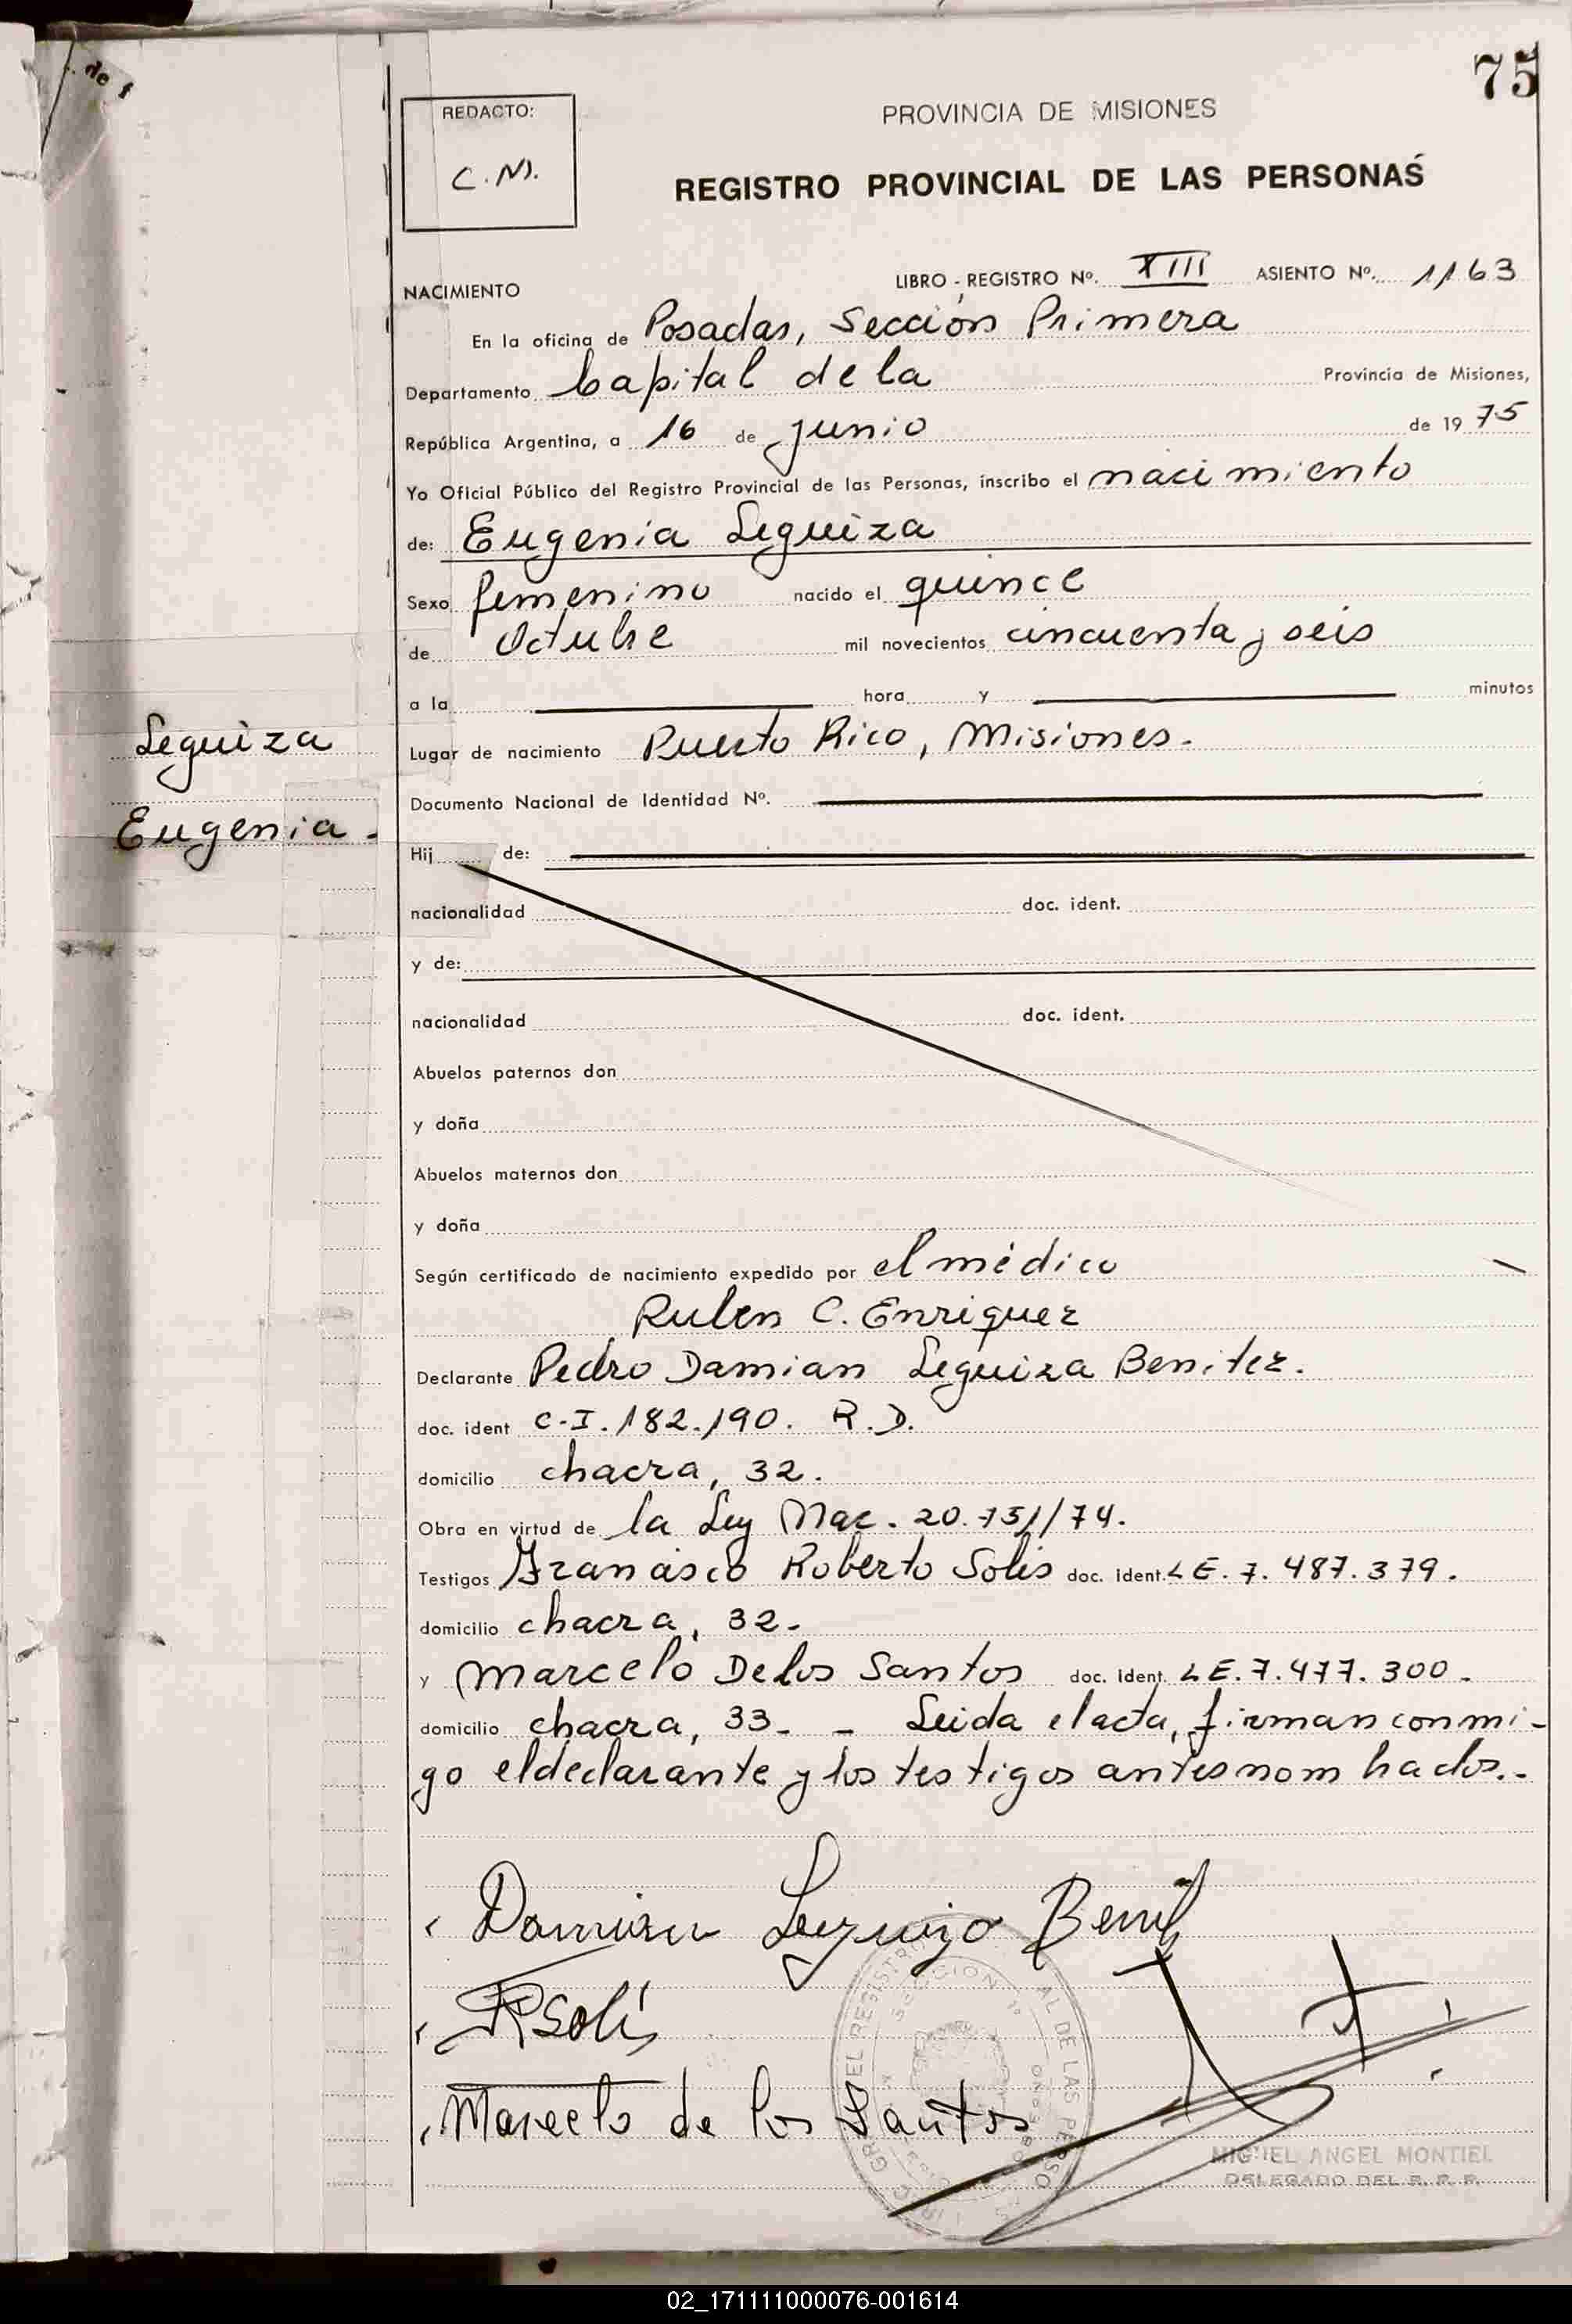 75
REDACTO:
C.N.
PROVINCIA DE MISIONES
REGISTRO PROVINCIAL DE LAS PERSONAS
NACIMIENTO
LIBRO - REGISTRO Nº. XIII ASIENTO Nº. 1163
En la oficina de Posadas, Sección Primera
Departamento Capital de la Provincia de Misiones,
República Argentina, a 16 de junio de 1975
Yo Oficial Público del Registro Provincial de las Personas, inscribo el nacimiento
de: Eugenia Leguiza
Sexo femenino nacido el quince
de Octubre mil novecientos cincuenta y seis
a la hora y minutos
Leguiza
Lugar de nacimiento Puerto Rico, Misiones.
Documento Nacional de Identidad Nº.
Eugenia.
Hij de:
nacionalidad doc. ident.
y de:
nacionalidad doc. ident.
Abuelos paternos don
y doña
Abuelos maternos don
y doña
Según certificado de nacimiento expedido por el médico
Ruben C. Enriquez
Declarante Pedro Damian Leguiza Benitez.
doc. ident C.I. 182.190. R.D.
domicilio chacra, 32.
Obra en virtud de la Ley Nac. 20.751/74.
Testigos Francisco Roberto Solis doc. ident. LE. 7.487.379.
domicilio chacra, 32.
y Marcelo De los Santos doc. ident. LE. 7.477.300.
domicilio chacra, 33. - Leida el acta, firman conmi-
go el declarante y los testigos antes nombados.-
Damian Leguizo Benit
RSolis
Marcelo de los Santos
MIGUEL ANGEL MONTIEL
DELEGADO DEL R. P. P.
02_171111000076-001614